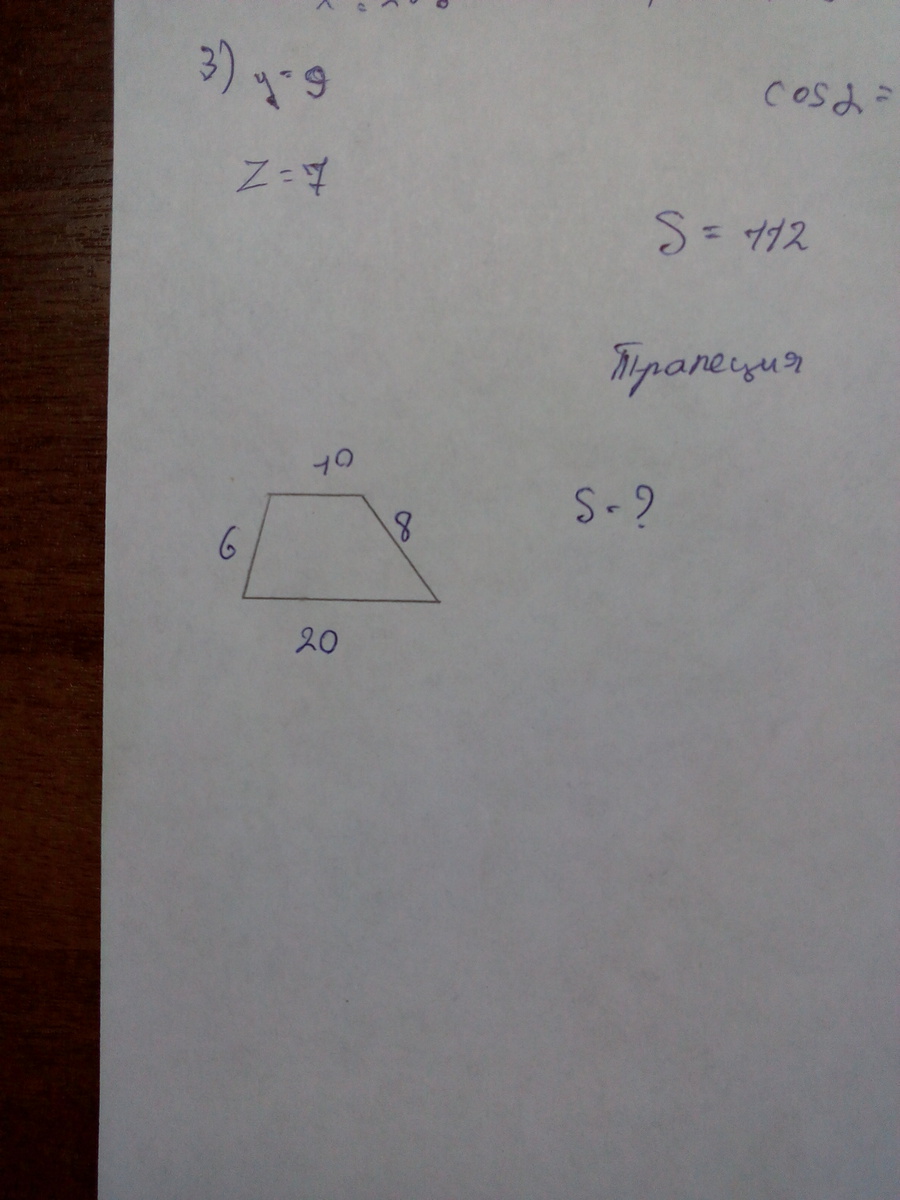 3) y = 9
cos α =
z = 7
S = 112
Трапеция
10
S - ?
6
8
20